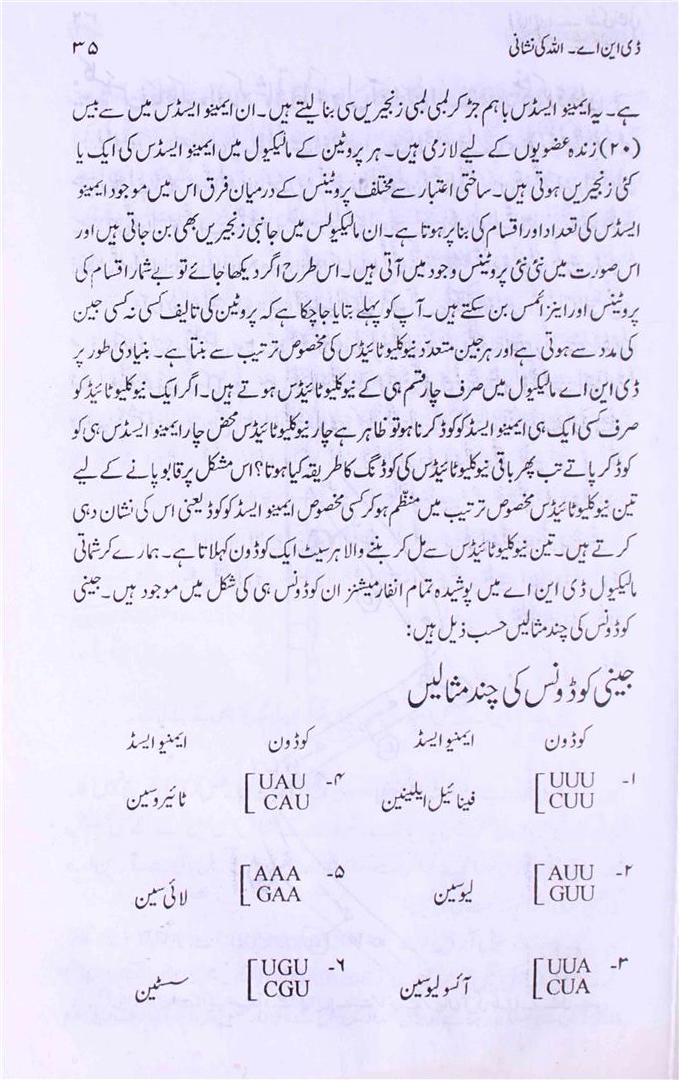 ڈی این اے۔ اللہ کی نشانی ۳۵
ہے۔ یہ ایمینو ایسڈس باہم جڑ کر لمبی لمبی زنجیریں سی بنا لیتے ہیں۔ ان ایمینو ایسڈس میں سے بیس
(۲۰) زندہ عضویوں کے لیے لازمی ہیں۔ ہر پروٹین کے مالیکیول میں ایمینو ایسڈس کی ایک یا
کئی زنجیریں ہوتی ہیں۔ ساختی اعتبار سے مختلف پروٹینس کے درمیان فرق اس میں موجود ایمینو
ایسڈس کی تعداد اور اقسام کی بنا پر ہوتا ہے۔ ان مالیکیولس میں جانبی زنجیریں بھی بن جاتی ہیں اور
اس صورت میں نئی نئی پروٹینس وجود میں آتی ہیں۔ اس طرح اگر دیکھا جائے تو بے شمار اقسام کی
پروٹینس اور اینزائمس بن سکتے ہیں۔ آپ کو پہلے بتایا جا چکا ہے کہ پروٹین کی تالیف کسی نہ کسی جین
کی مدد سے ہوتی ہے اور ہر جین متعدّد نیوکلیوٹائیڈس کی مخصوص ترتیب سے بنتا ہے۔ بنیادی طور پر
ڈی این اے مالیکیول میں صرف چار قسم ہی کے نیوکلیوٹائیڈس ہوتے ہیں۔ اگر ایک نیوکلیوٹائیڈ کو
صرف کسی ایک ہی ایمینو ایسڈ کو کوڈ کرنا ہو تو ظاہر ہے چار نیوکلیوٹائیڈس محض چار ایمینو ایسڈس ہی کو
کوڈ کر پاتے تب پھر باقی نیوکلیوٹائیڈس کی کوڈنگ کا طریقہ کیا ہوتا؟ اس مشکل پر قابو پانے کے لیے
تین نیوکلیوٹائیڈس مخصوص ترتیب میں منظّم ہو کر کسی مخصوص ایمینو ایسڈ کو کوڈ یعنی اس کی نشان دہی
کرتے ہیں۔ تین نیوکلیوٹائیڈس سے مل کر بننے والا ہر سیٹ ایک کوڈون کہلاتا ہے۔ ہمارے کرشماتی
مالیکیول ڈی این اے میں پوشیدہ تمام انفارمیشنز ان کوڈونس ہی کی شکل میں موجود ہیں۔ جینی
کوڈونس کی چند مثالیں حسب ذیل ہیں:
جینی کوڈونس کی چند مثالیں
کوڈون ایمنیو ایسڈ کوڈون ایمنیو ایسڈ
۱- UUU ۴- UAU
CUU فینائیل ایلینین CAU ٹائیروسین
۲- AUU ۵- AAA
GUU لیوسین GAA لائی سین
۳- UUA ۶- UGU
CUA آئسولیوسین CGU سسٹین